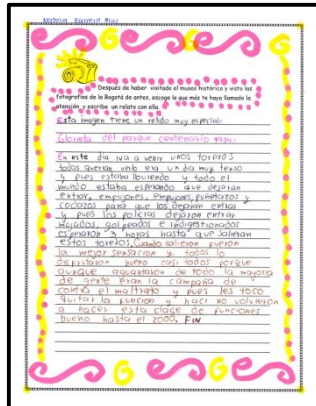 Después de haber visitado el museo histórico y visto las
fotografías de la Bogotá de antes, escoge la que más te haya llamado la
atención y escribe un relato con ella
Esta imagen tiene un relato muy especial:
Glorieta del parque centenario
En este día iva a venir unos toreros
todos querian verlo era un día muy tenso
y pues estaba lloviendo y todo el
mundo estaba esperando que dejaran
entrar, empujones, empujones, puñetazos y
cocazos para que los dejaran entrar
y pues los policias dejaron entrar
mojados, golpeados e indigestionados
esperaron 3 horas hasta que salieran
estos toreros. Cuando salieron fueron
la mejor sensacion y todos lo
disfrutaron bueno casi todos porque
aunque aguantaron de todo la mayoria
de gente eran la campaña de
contra el maltrato y pues les toco
quitar la funcion y haci no volvieron
a hacer esta clase de funciones
bueno hasta el 2000. FIN